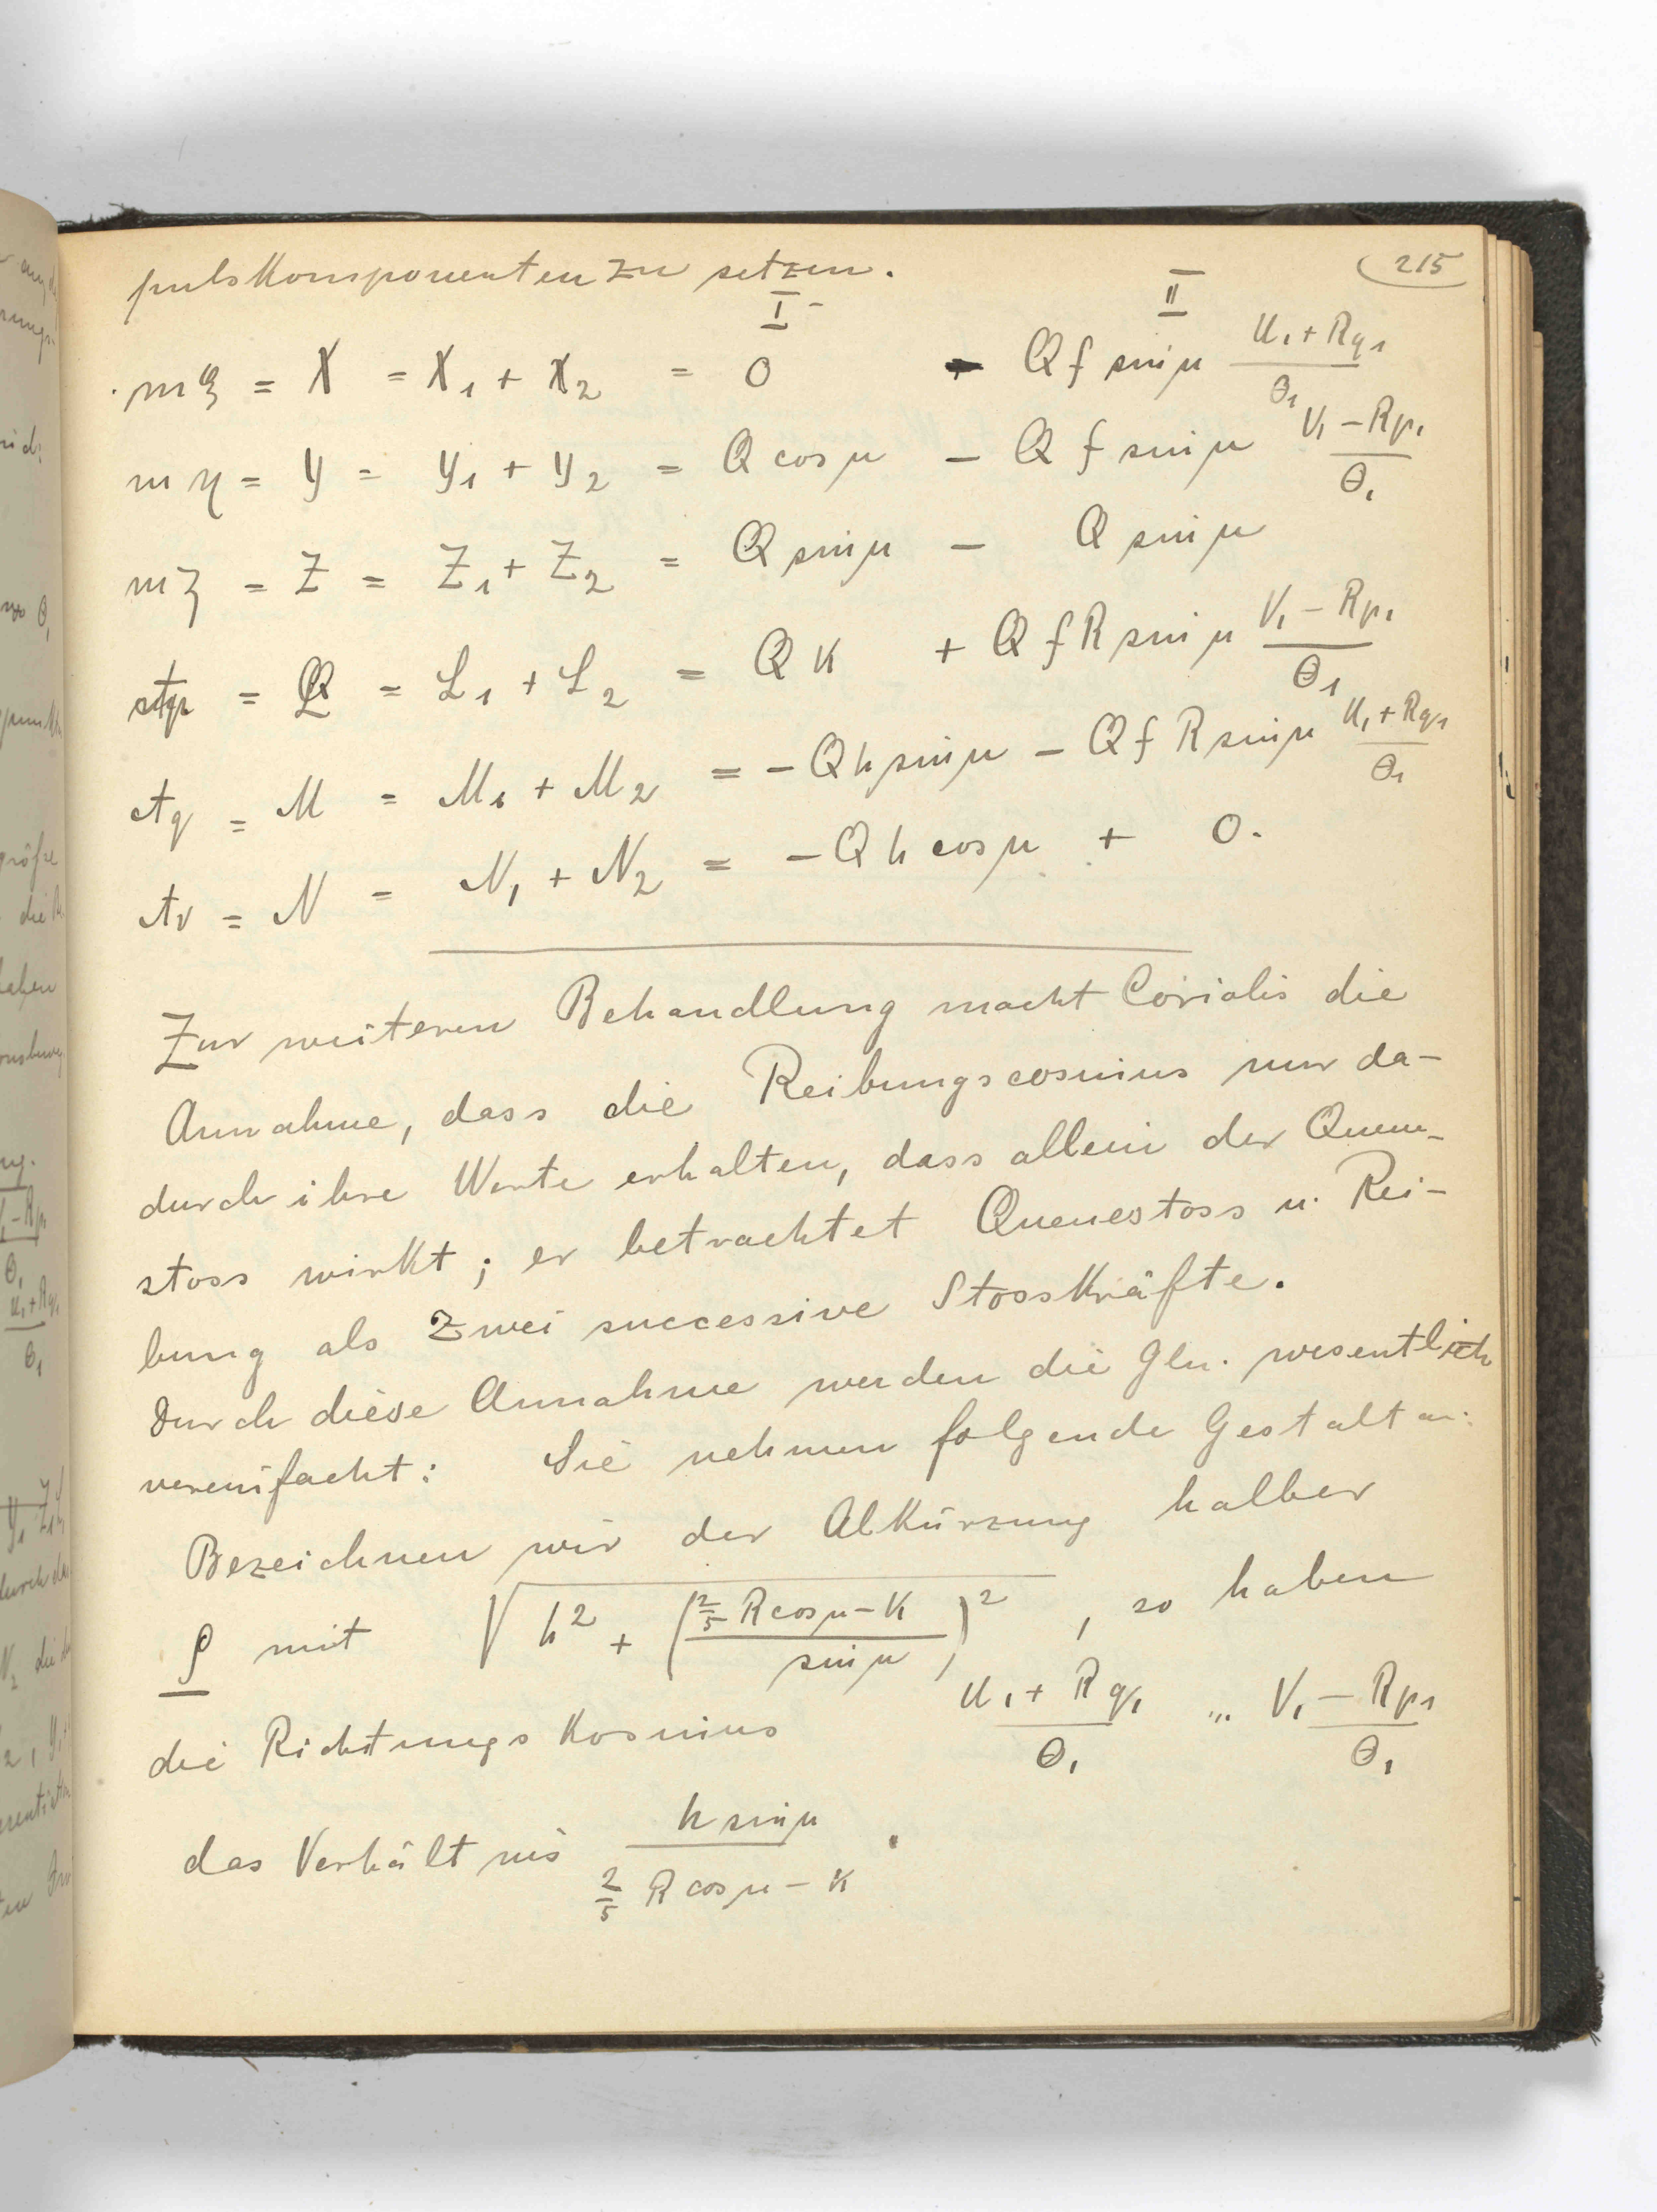 215
pulskomponenten zu setzen.
I II
mξ = X = X₁ + X₂ = 0 - Q f sin μ (U₁ + Rq₁)/Θ₁
mη = Y = Y₁ + Y₂ = Q cos μ - Q f sin μ (V₁ - Rp₁)/Θ₁
mζ = Z = Z₁ + Z₂ = Q sin μ - Q sin μ
Ap = L = L₁ + L₂ = Q k + Q f R sin μ (V₁ - Rp₁)/Θ₁
Aq = M = M₁ + M₂ = - Q h sin μ - Q f R sin μ (U₁ + Rq₁)/Θ₁
Ar = N = N₁ + N₂ = - Q h cos μ + 0.
Zur weiteren Behandlung macht Coriolis die
Annahme, dass die Reibungscosinus nur da-
durch ihre Werte erhalten, dass allein der Queue-
stoss wirkt; er betrachtet Queuestoss u. Rei-
bung als zwei successive Stosskräfte.
Durch diese Annahme werden die Gln. wesentlich
vereinfacht: Sie nehmen folgende Gestalt an:
Bezeichnen wir der Abkürzung halber
ρ mit √(h² + ((2/5 R cos μ - k)/sin μ)²), so haben
die Richtungskosinus (U₁ + Rq₁)/Θ₁ „ (V₁ - Rp₁)/Θ₁
das Verhältnis (h sin μ)/(2/5 R cos μ - k).